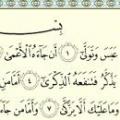 بِسْ
عَبَسَ وَتَوَلَّىٰ ١ أَن جَاءَهُ الْأَعْمَىٰ
يَذَّكَّرُ فَتَنفَعَهُ الذِّكْرَىٰ ٤ أَمَّا مَنِ
وَمَا عَلَيْكَ أَلَّا يَزَّكَّىٰ ٧ وَأَمَّا مَن جَاءَ